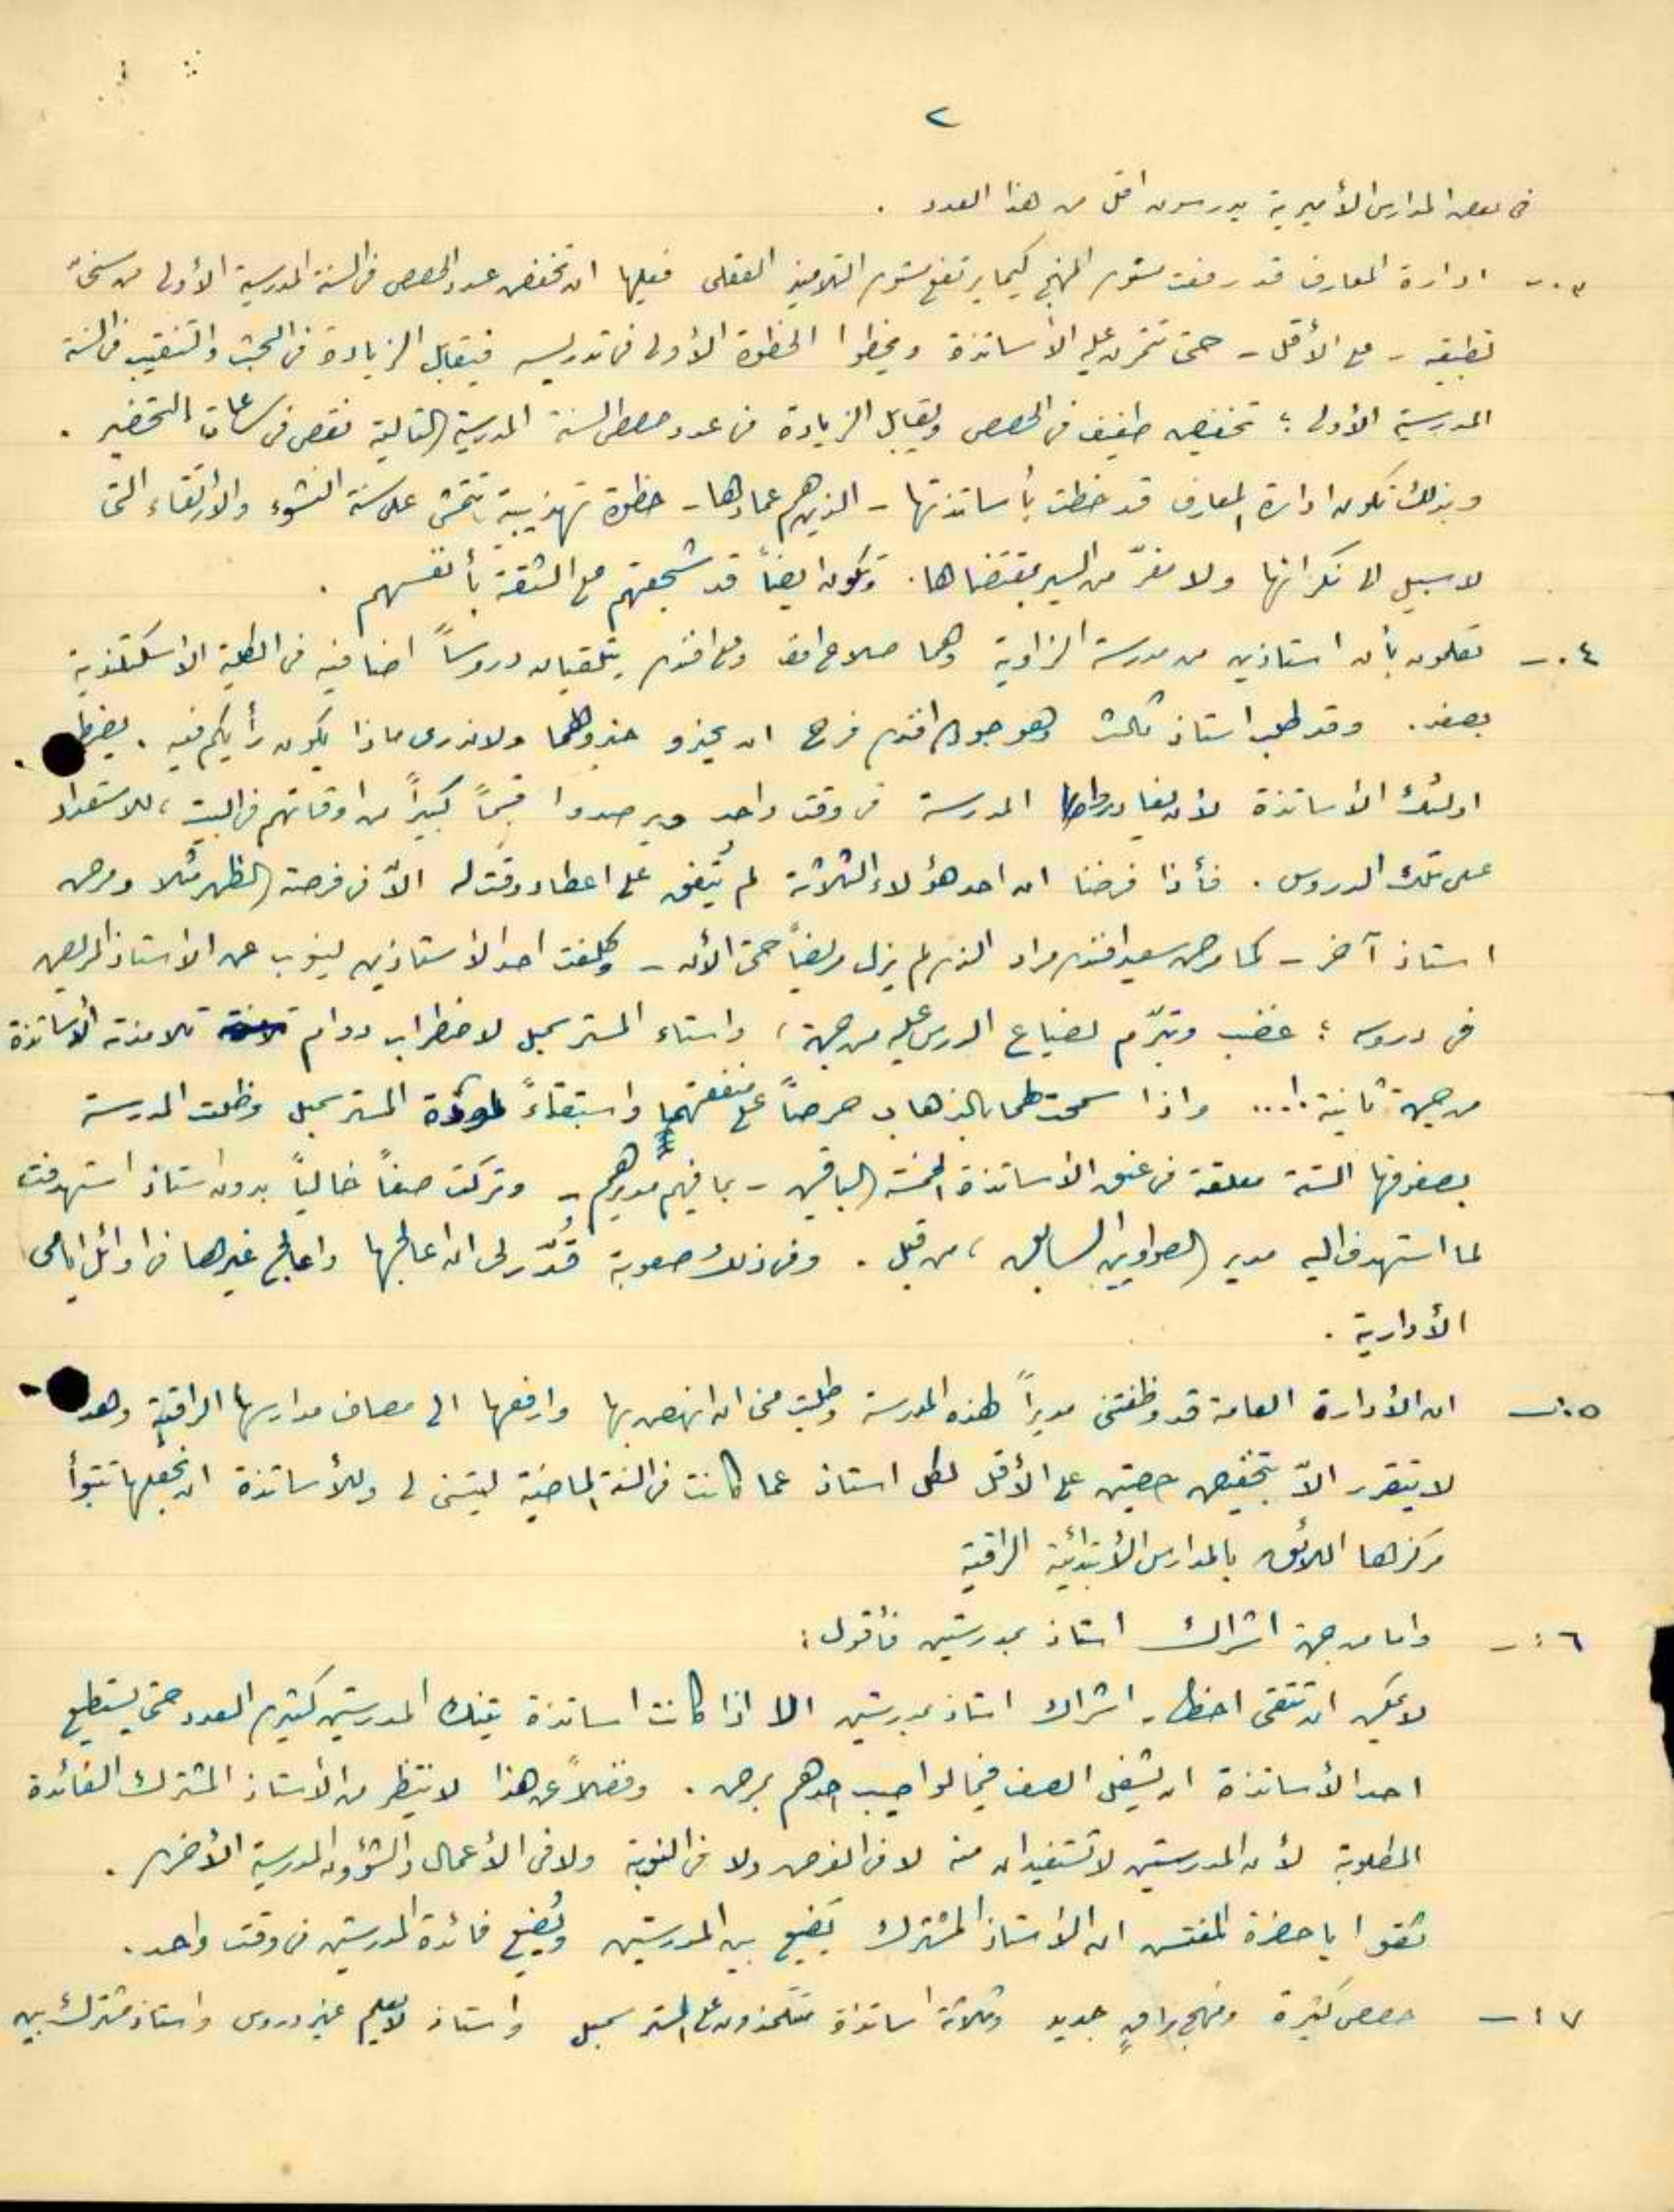 ٢
في بعض المدارس الأميرية يدرسون اقل من هذا العدد .
٣.- ادارة المعارف قد رفعت مستوى المنهج كيما يرتفع مستوى التلاميذ العقلي فعليها ان تخفض عدد الحصص في السنة المدرسية الأولى من سني
تطبيقه - على الأقل - حتى تتمرن عليه الأساتذة ويخطوا الخطوة الأولى في تدريسه فيقابل الزيادة في البحث والتنقيب في السنة
المدرسية الأولى ؛ تخفيض طفيف في الحصص ويقابل الزيادة في عدد حصص السنة المدرسية التالية نقص في ساعات التحضير .
وبذلك تكون ادارة المعارف قد خطت بأساتذتها - الذين هم عمادها - خطوة تهذيبية تتمشى على سنة النشوء والارتقاء التي
لا سبيل الى نكرانها ولا مفرّ من السير بمقتضاها . وتكون ايضاً قد شجعتهم على الثقة بأنفسهم .
٤.- تعلمون بأن استاذين من مدرسة الزاوية وهما صلاح افندي يتلقيان دروساً اضافيه في الكلية الاسكتلندية
بصفد . وقد طلب استاذ ثالث وهو افندي فرح ان يحذو حذوهما ولا ندري ماذا يكون رأيكم فيه . يضطر
اولئك الأساتذة لأن يغادروا المدرسة في وقت واحد ويرصدوا قسماً كبيراً من اوقاتهم في البيت ، للاستعداد
على تلك الدروس . فأذا فرضنا ان احد هؤلاء الثلاثة لم يُتفق على اعطاء وقت له الاّ في فرصة الظهر مثلا ومرض
استاذ آخر - كما مرض سعيد افندي مراد الذي لم يزل مريضاً حتى الأن - وكلفت احد الأستاذين لينوب عن الاستاذ المريض
في دروسه ؛ غضب وتبرّم لضياع الدرس عليه من جهة ، واستاء المستر سمبل لاضطراب دوام تلامذته الأساتذة
من جهة ثانية !.... واذا سمحت لهما بالذهاب حرصاً على منفعتهما واستبقاءً لمودّة المستر سمبل وظلت المدرسة
بصفوفها الستة معلقة في عنق الأساتذة الخمسة الباقين - بما فيهم مديرهم - وتركت صفاً خالياً بدون استاذ استهدفت
لما استهدف اليه مدير السابق ، من قبل . وفي ذلك صعوبة قُدّر لي ان اعالجها واعالج غيرها في اوائل ايامي
الأدارية .
٥.- ان الأدارة العامة قد وظفتني مديراً لهذه المدرسة وطلبت مني ان انهض بها وارفعها الى مصاف مدارسها الراقية وهذا
لا يتقرر الاّ بتخفيض حصتين على الأقل لكل استاذ عما كانت في السنة الماضية ليتسنى لي وللأساتذة ان نجعلها تتبوأ
مركزها اللائق بالمدارس الأبتدائية الراقية
٦:- واما من جهة اشراك استاذ بمدرستين فأقول :
لا يمكن ان تتقى اخطار اشراك استاذ بمدرستين الا اذا كانت اساتذة تينك المدرستين كثيري العدد حتى يستطيع
احد الأساتذة ان يشغل الصف فيما لو اصيب احدهم بمرض . وفضلاً عن هذا لا ينتظر من الأستاذ المشترك الفائدة
المطلوبة لأن المدرستين لا تستفيدان منه لا في الفرص ولا في النوبة ولا في الأعمال والشؤون المدرسية الأخرى .
ثقوا يا حضرة المفتش ان الأستاذ المشترك يَضيع بين المدرستين ويُضيع فائدة المدرستين في وقت واحد .
٧.- حصص كثيرة ومنهج راقٍ جديد وثلاثة اساتذة يتتلمذون على المستر سمبل واستاذ لا يعلم غير دروس واستاذ مشترك بين